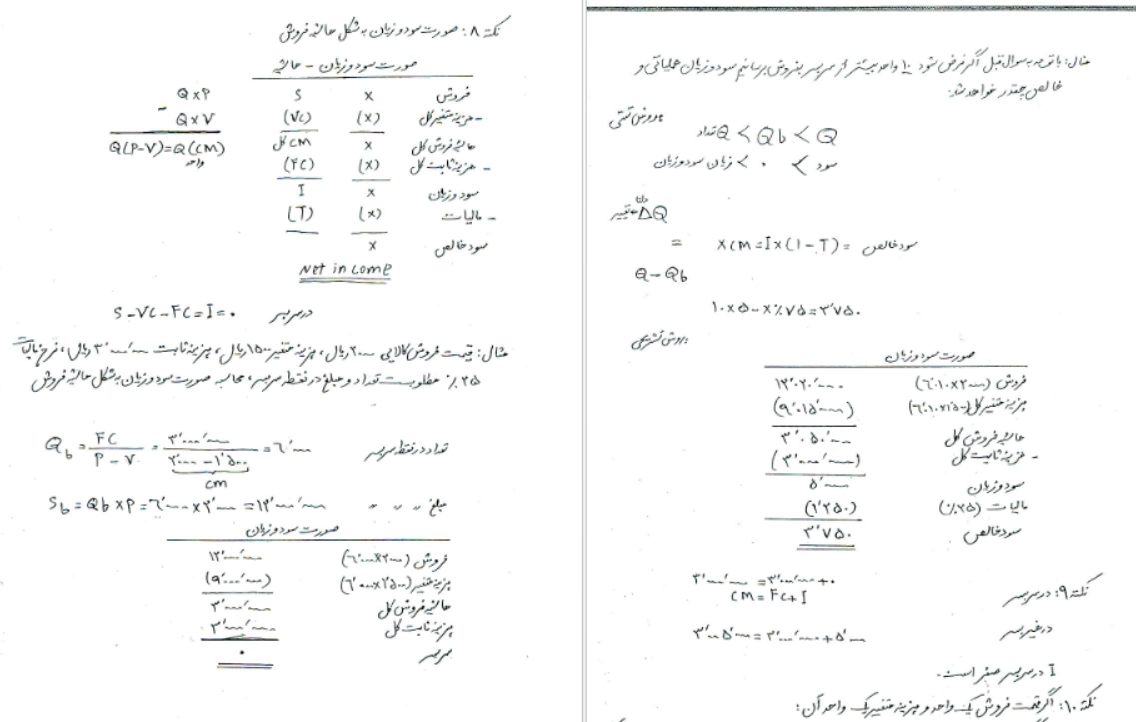 نکته ۸: صورت سود و زیان به شکل حاشیه فروش
صورت سود و زیان - حاشیه
فروش x S Q×P
- هزینه متغیر کل (x) (VC) - Q×V
حاشیه فروش کل x CM کل Q(P-V)=Q(CM)
واحد
- هزینه ثابت کل (x) (FC)
سود و زیان x I
- مالیات (x) (T)
سود خالص x
Net income
در سربسر S-VC-FC=I=۰
مثال: قیمت فروش کالایی ۲۰۰۰ ریال، هزینه متغیر ۱۵۰۰ ریال، هزینه ثابت ۳٬۰۰۰٬۰۰۰ ریال، نرخ مالیات
۲۵٪ مطلوبست تعداد و مبلغ در نقطه سربسر، محاسبه صورت سود و زیان به شکل حاشیه فروش
تعداد در نقطه سربسر Qb = FC / P-V = ۳٬۰۰۰٬۰۰۰ / ۲٬۰۰۰-۱٬۵۰۰ = ۶٬۰۰۰
CM
مبلغ " " " Sb = Qb×P = ۶٬۰۰۰×۲٬۰۰۰ = ۱۲٬۰۰۰٬۰۰۰
صورت سود و زیان
فروش (۶٬۰۰۰×۲۰۰۰) ۱۲٬۰۰۰٬۰۰۰
هزینه متغیر (۶٬۰۰۰×۱٬۵۰۰) (۹٬۰۰۰٬۰۰۰)
حاشیه فروش کل ۳٬۰۰۰٬۰۰۰
هزینه ثابت کل ۳٬۰۰۰٬۰۰۰
سربسر ۰
مثال: با توجه به سوال قبل اگر فرض شود ۱۰ واحد بیشتر از سربسر بفروش برسانیم سود و زیان عملیاتی و
خالص چقدر خواهد شد.
روش تستی
تعداد Q < Qb < Q
سود > ۰ > زیان سود و زیان
دلتا
تغییر ← ΔQ
= سود خالص = xCM=I×(1-T)
Q-Qb
۱۰×۵۰۰×٪۷۵=۳٬۷۵۰
روش تشریحی
صورت سود و زیان
فروش (۶٬۰۱۰×۲۰۰۰) ۱۲٬۰۲۰٬۰۰۰
هزینه متغیر کل (۶٬۰۱۰×۱۵۰۰) (۹٬۰۱۵٬۰۰۰)
حاشیه فروش کل ۳٬۰۰۵٬۰۰۰
- هزینه ثابت کل (۳٬۰۰۰٬۰۰۰)
سود و زیان ۵٬۰۰۰
مالیات (۲۵٪) (۱٬۲۵۰)
سود خالص ۳٬۷۵۰
نکته ۹: در سربسر ۳٬۰۰۰٬۰۰۰ = ۳٬۰۰۰٬۰۰۰+۰
CM = FC+I
در غیر سربسر ۳٬۰۰۵٬۰۰۰ = ۳٬۰۰۰٬۰۰۰+۵٬۰۰۰
I در سربسر صفر است.
نکته ۱۰: اگر قیمت فروش یک واحد و هزینه متغیر یک واحد آن: